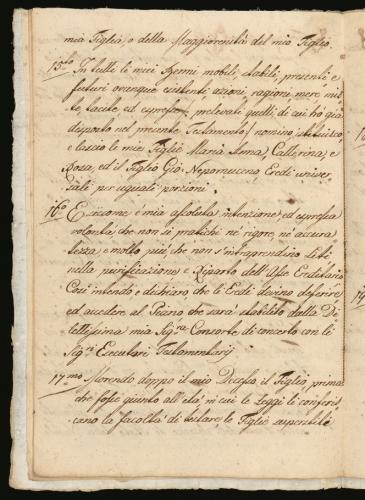 mia Figlia, o della Maggiorenità del mio Figlio.
15.to In tutti li miei Benni mobili, stabili, presenti, e
futuri ovunque esistenti, azioni, ragioni, mere mis-
te, tacite ed espresse, prelevati quelli, di cui ho già
disposto nel presente Testamento, nomino, istituisco,
e lascio le mie Figlie Maria Anna, Catterina, e
Rosa, ed il Figlio Gio: Nepomuceno Eredi univer-
sali per uguali porzioni.
16.o E siccome è mia assoluta intenzione ed espressa
volontà che non si pratichi nè rigore, nè accura
tezza e molto più, che non s'intraprendino Liti
nella purificazione e Riparto dell'Asse Ereditario
Così intendo e dichiaro, che li Eredi devino deferire
ed accedere al Piano che sarà stabilito dalla Di-
lettissima mia Sig.ra Consorte di concerto con li
Sig.ri Esecutori Testamentarij
17.mo Morendo doppo il mio Decesso il Figlio, prima
che fosse giunto all'età, in cui le Leggi le conferis-
cano la facoltà di testare, le Figlie superstiti